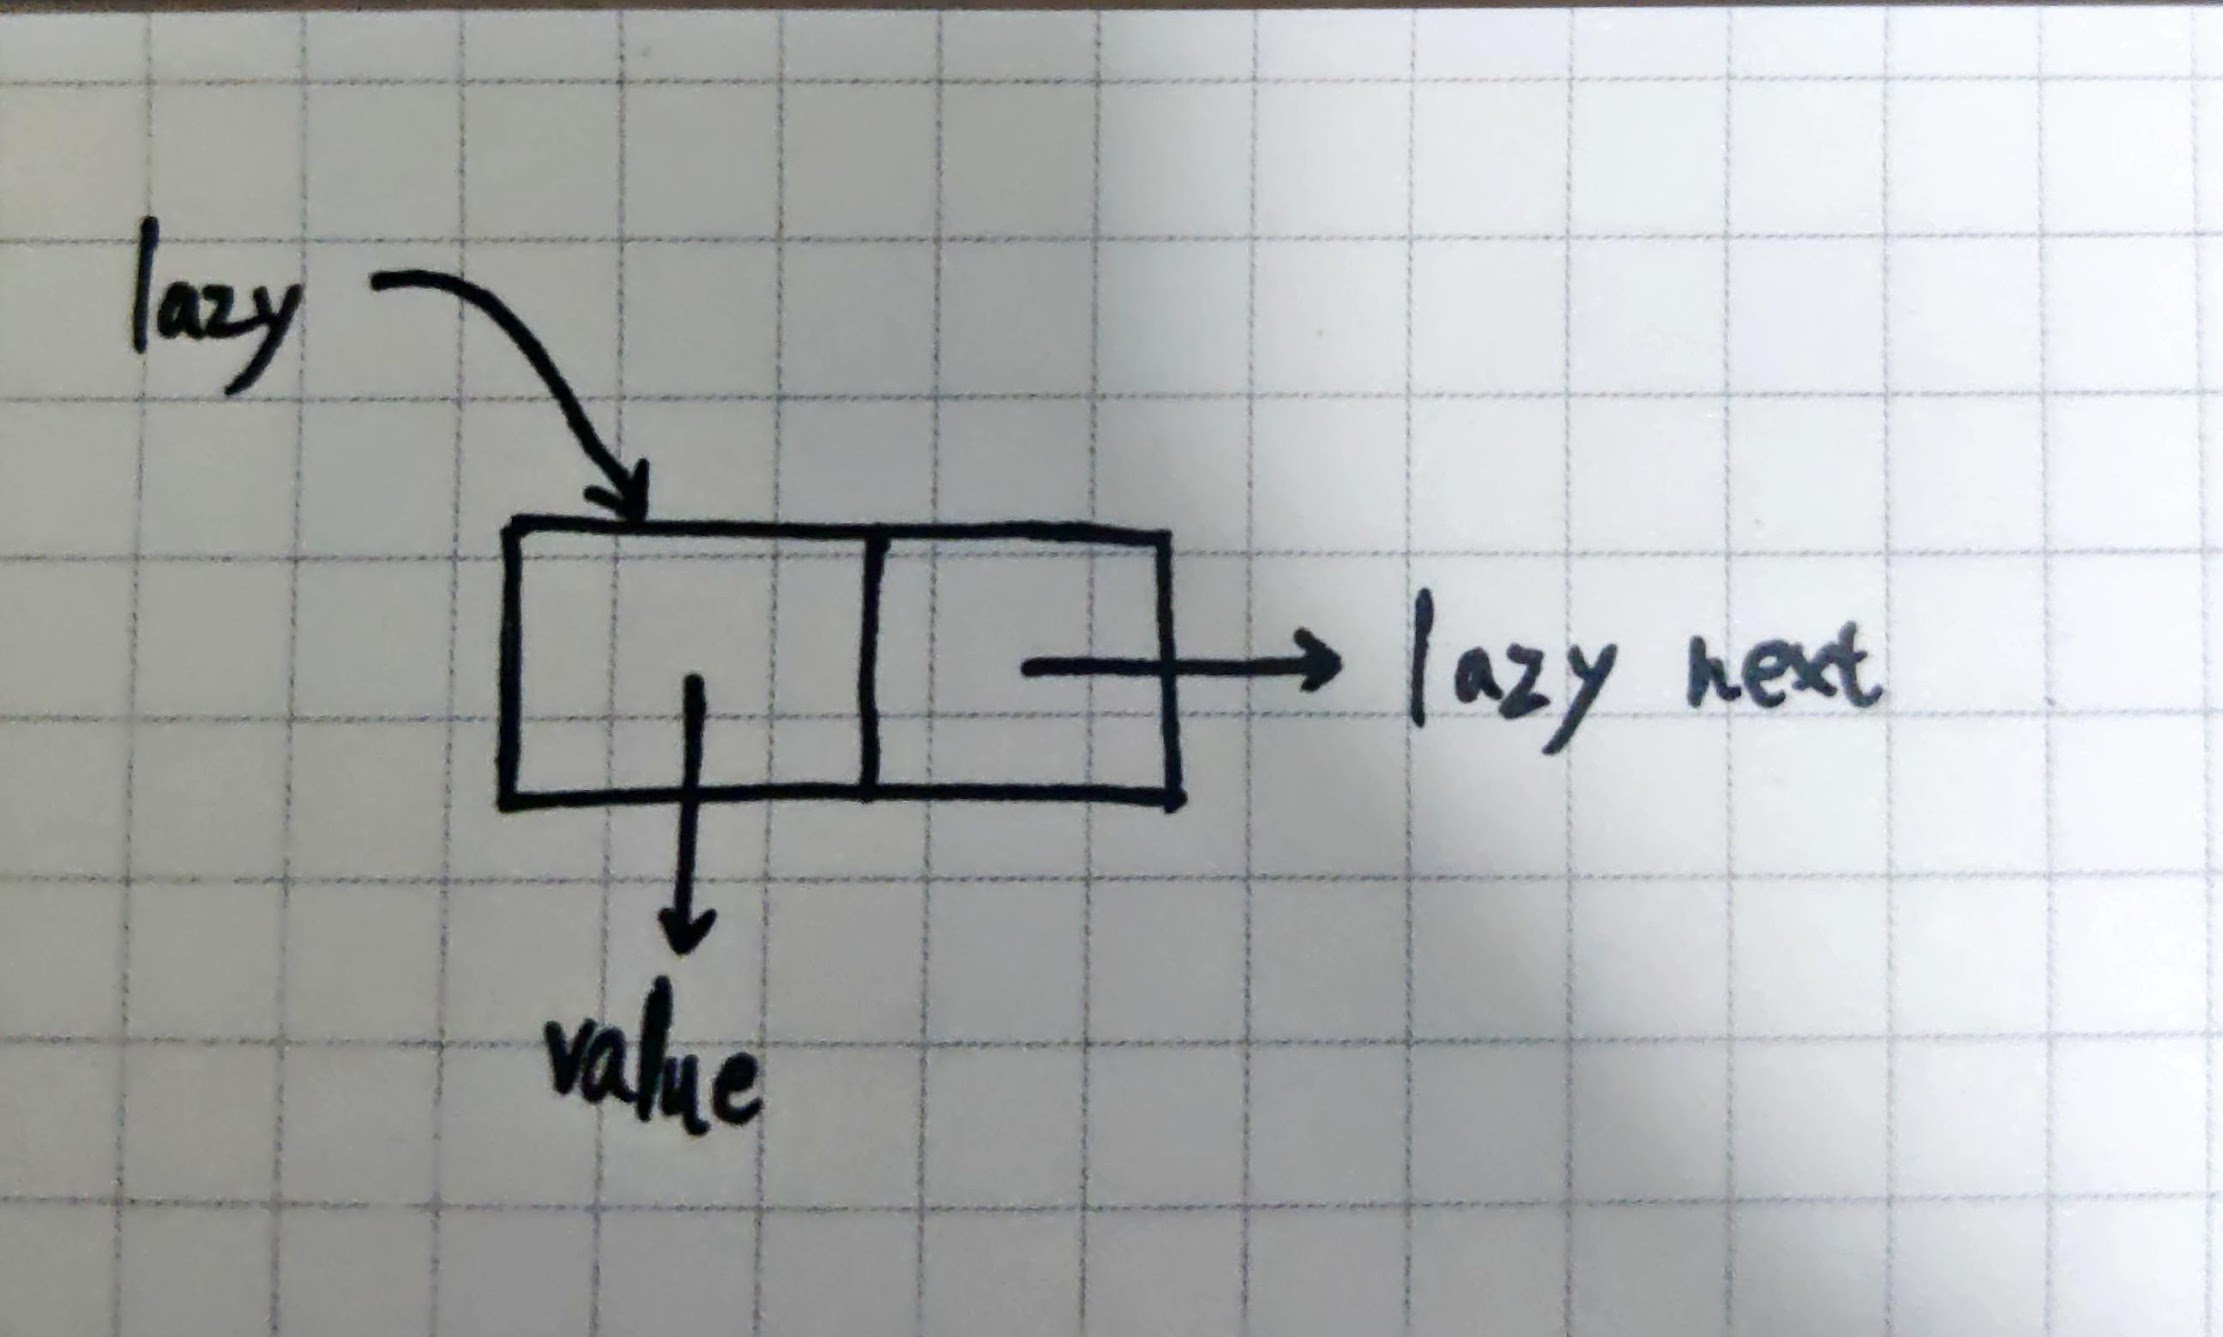 lazy
lazy next
value